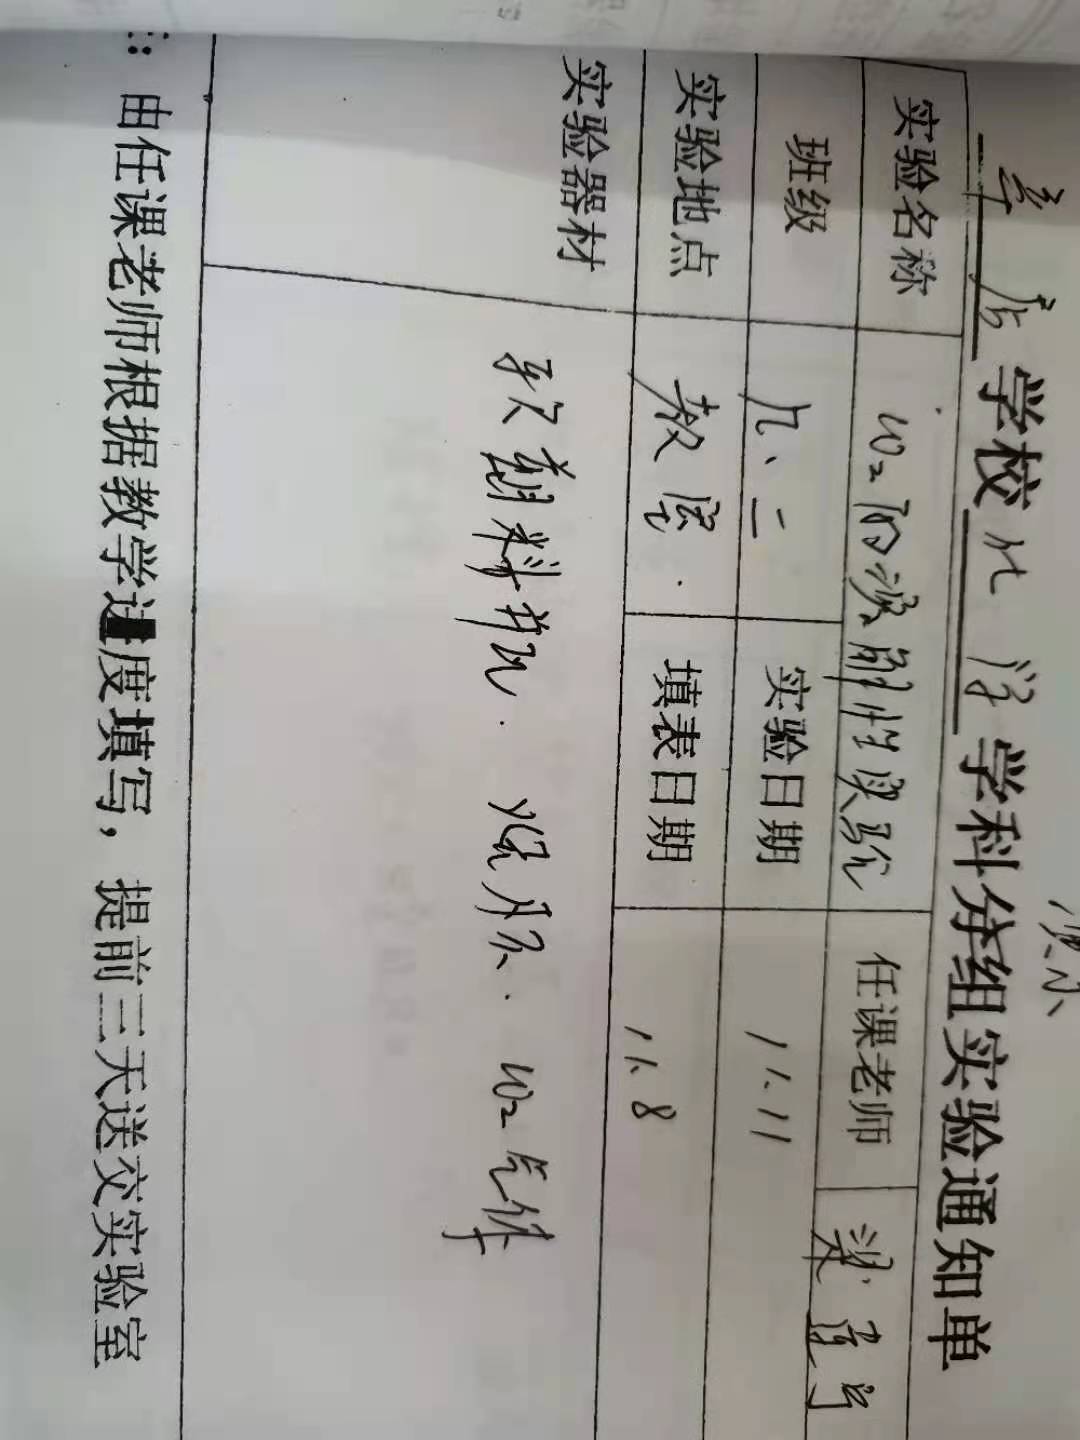 演示
学校 化学 学科分组实验通知单
实验名称 CO₂的溶解性实验 任课老师 梁
班级 九、二 实验日期 11.11
实验地点 教室 填表日期 11.8
实验器材 软塑料瓶. 水. CO₂气体
: 由任课老师根据教学进度填写，提前三天送交实验室